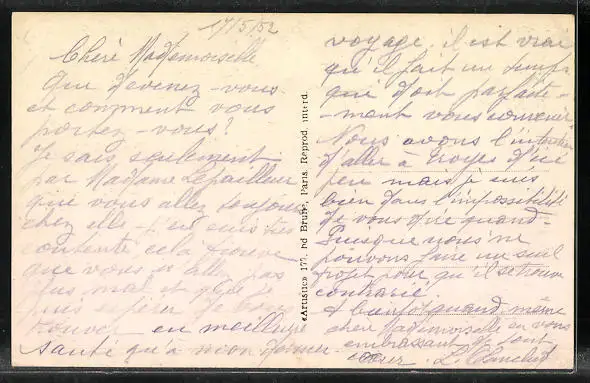 17/5/52
Chère Mademoiselle
Que devenez-vous
et comment vous
portez-vous?
Je sais seulement
par Madame Lepailleur
que vous allez toujours
chez elle - j'en suis très
contente cela prouve
que vous n'allez pas
plus mal et que je
puis espérer de vous
trouver en meilleure
santé qu'à mon dernier
«Artistic» 177, Bd Brune, Paris. Reprod. interd.
voyage. il est vrai
qu'il fait un temps
qui doit parfaite-
-ment vous convenir
Nous avons l'intention
d'aller à Troyes d'ici
peu mais je suis
bien dans l'impossibilité
de vous dire quand -
Puisque nous ne
pouvons faire un seul
projet pour qu'il se trouve
contrarié.
A bientôt quand même
chère Mademoiselle en vous
embrassant de tout
coeur. L.